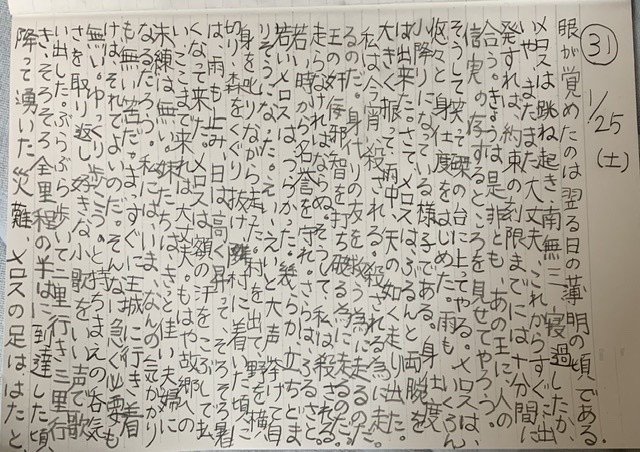 31
1/25(土)
眼が覚めたのは翌る日の薄明の頃である。
メロスは跳ね起き、南無三、寝過したか、
いや、まだまだ大丈夫、これからすぐに出
発すれば、約束の刻限までには十分間に
合う。きょうは是非とも、あの王に、人の
信実の存するところを見せてやろう。
そうして笑って磔の台に上ってやる。メロスは、
悠々と身仕度をはじめた。雨も、いくぶん
小降りになっている様子である。身仕度
は出来た。さて、メロスは、ぶるんと両腕を
大きく振って、雨中、矢の如く走り出た。
私は、今宵、殺される。殺される為に走
るのだ。身代りの友を救う為に走るのだ。
王の奸佞邪智を打ち破る為に走るのだ。
走らなければならぬ。そうして、私は殺される。
若い時から名誉を守れ。さらば、ふるさと。
若いメロスは、つらかった。幾らか、立ちどま
りそうになった。えい、えいと大声挙げて自
身を叱りながら走った。村を出て、野を横
切り、森をくぐり抜け、隣村に着いた頃に
は、雨も止み、日は高く昇って、そろそろ暑
くなって来た。メロスは額の汗をこぶしで払
い、ここまで来れば大丈夫、もはや故郷への
未練は無い。妹たちは、きっと佳い夫婦に
なるだろう。私には、いま、なんの気がかり
も無い筈だ。まっすぐに王城に行き着
けば、それでよいのだ。そんなに急ぐ必要も
無い。ゆっくり歩こう、と持ちまえの呑気
さを取り返し、好きな小歌をいい声で歌
い出した。ぶらぶら歩いて二里行き三里行
き、そろそろ全里程の半ばに到達した頃、
降って湧いた災難、メロスの足は、はたと、